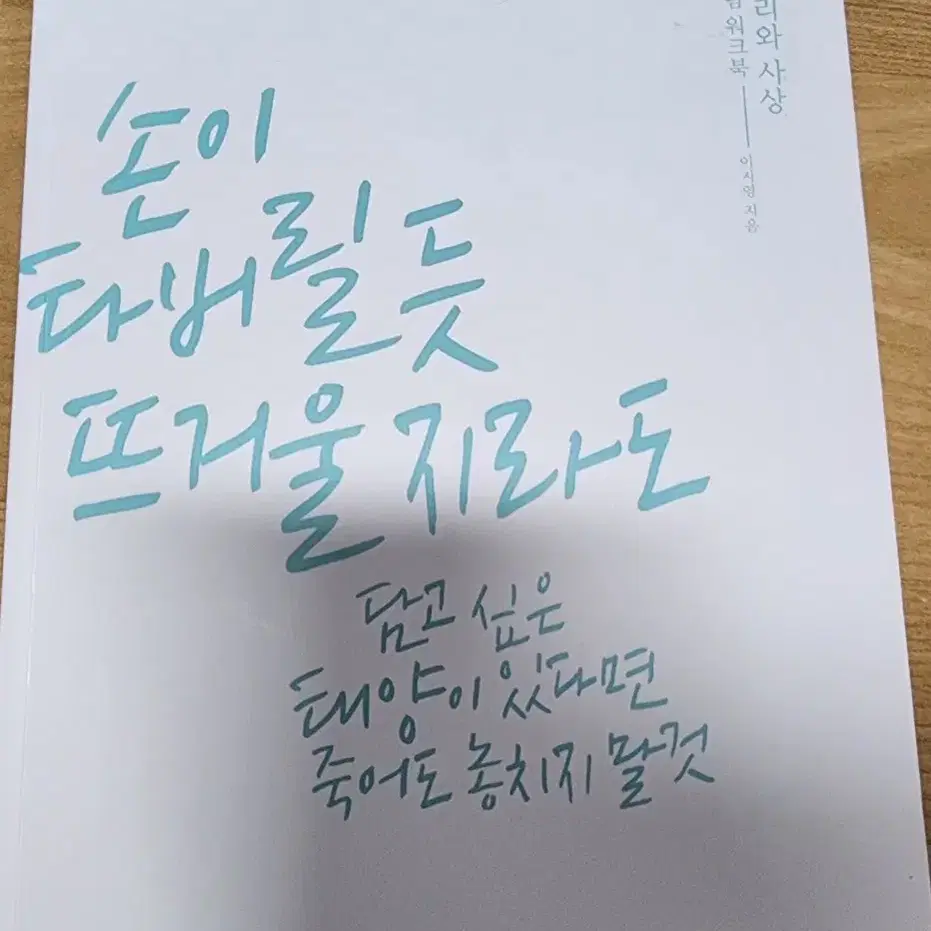 손이
타버릴 듯
뜨거울지라도
담고 싶은
태양이 있다면
죽어도 놓치지 말 것
리와 사상
워크북
이지영 지음